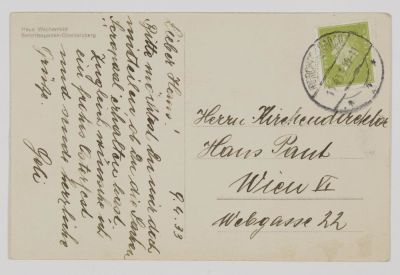 Haus Wachenfeld
Berchtesgaden-Obersalzberg
9.4.33
Lieber Hans!
Bitte möchtest Du mir doch
mitteilen, ob Du die Sachen
erhalten hast.
Zugleich wünsche ich
ein frohes Osterfest
und sende herzliche
Grüße.
Herrn Kirchendirektor
Hans Paul
Wien VI
Webgasse 22